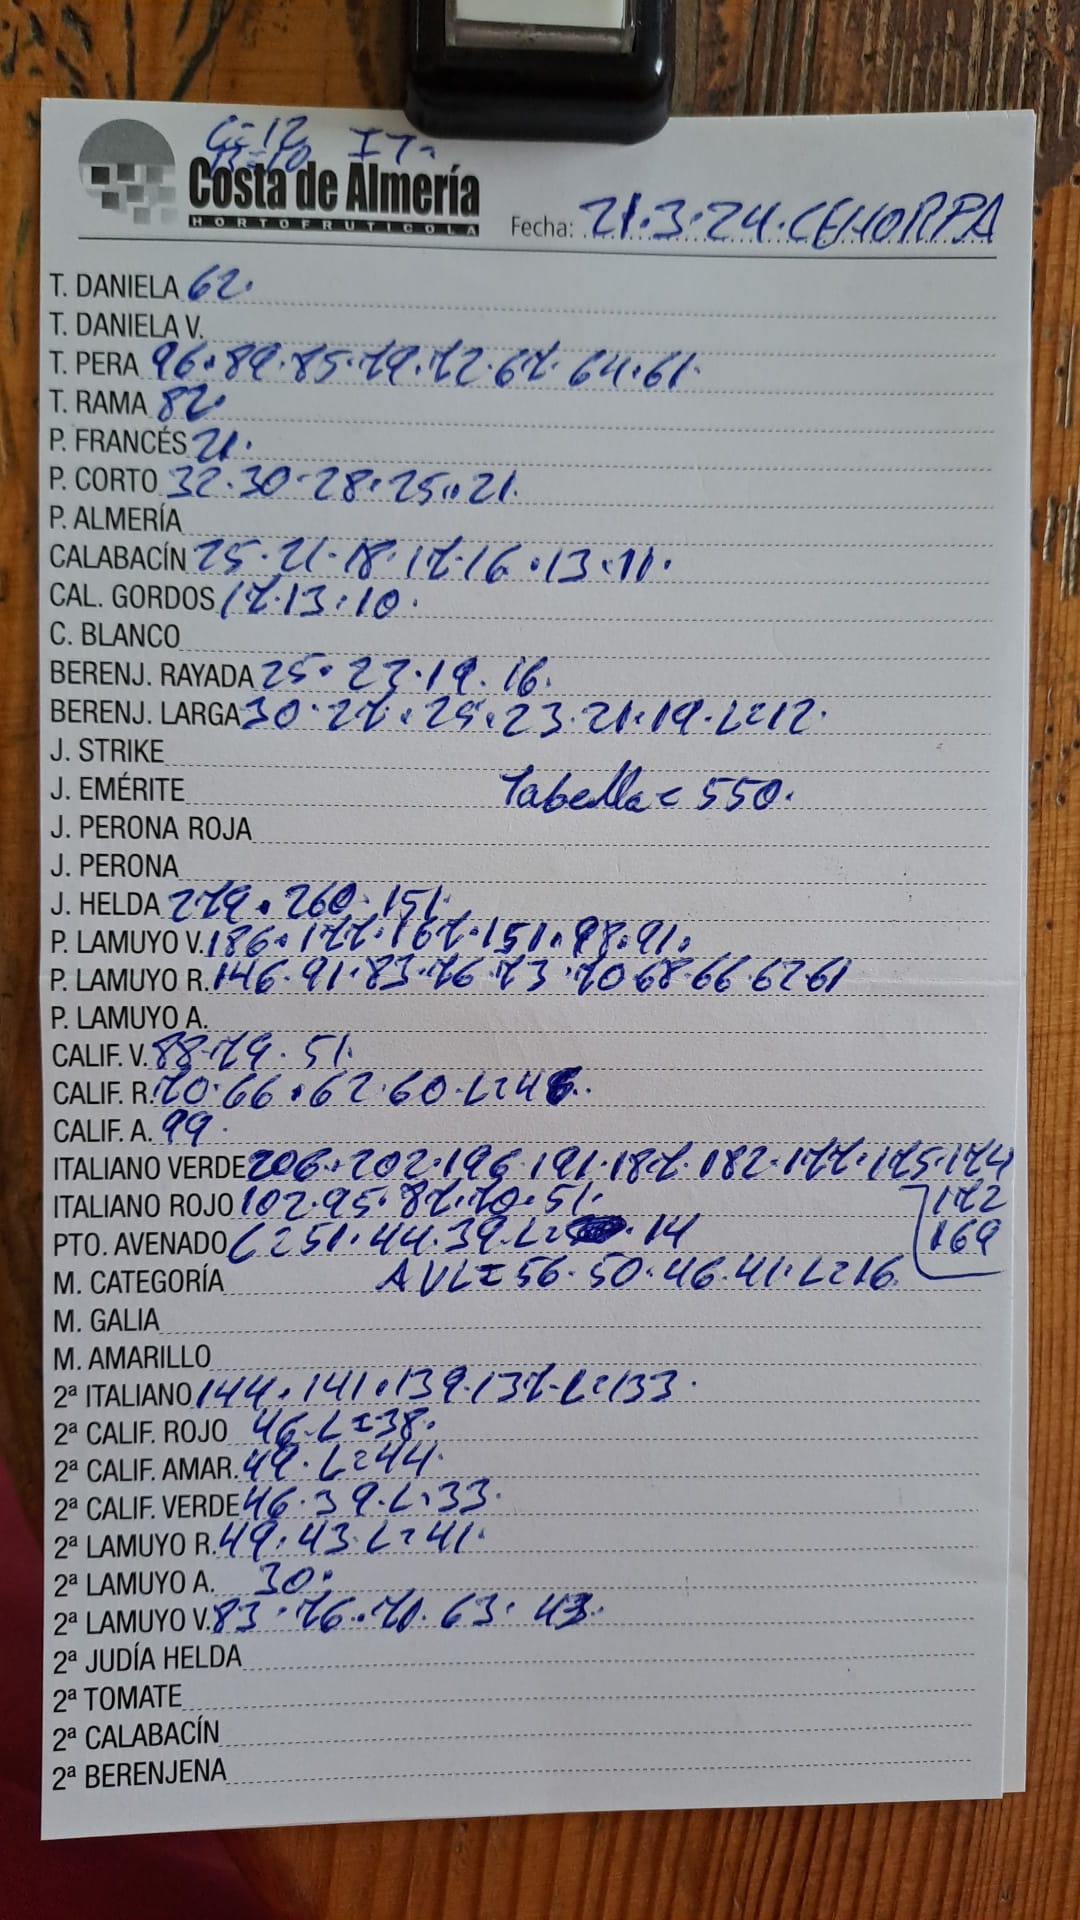 C=12 IT.
Costa de Almería
HORTOFRUTICOLA
Fecha: 21.3.24.CEHORPA
T. DANIELA 62.
T. DANIELA V.
T. PERA 96.89.85.79.72.67.64.61.
T. RAMA 82.
P. FRANCÉS 21.
P. CORTO 32.30.28.25.21.
P. ALMERÍA
CALABACÍN 25.21.18.17.16.13.11.
CAL. GORDOS 17.13.10.
C. BLANCO
BERENJ. RAYADA 25.23.19.16.
BERENJ. LARGA 30.27.25.23.21.19.L=12.
J. STRIKE
J. EMÉRITE Tabella=550.
J. PERONA ROJA
J. PERONA
J. HELDA 279.260.151.
P. LAMUYO V. 186.177.167.151.98.91.
P. LAMUYO R. 146.91.83.76.73.70.68.66.62.61
P. LAMUYO A.
CALIF. V. 88.79.51.
CALIF. R. 70.66.62.60.L=46.
CALIF. A. 99.
ITALIANO VERDE 206.202.196.191.187.182.177.175.174
ITALIANO ROJO 102.95.87.70.51. 172
PTO. AVENADO C=51.44.39.L=.14 169
M. CATEGORÍA AVL=56.50.46.41.L=16
M. GALIA
M. AMARILLO
2ª ITALIANO 144.141.139.137.L=133.
2ª CALIF. ROJO 46.L=38.
2ª CALIF. AMAR. 49.L=44.
2ª CALIF. VERDE 46.39.L=33.
2ª LAMUYO R. 49.43.L=41.
2ª LAMUYO A. 30.
2ª LAMUYO V. 83.76.70.63.43.
2ª JUDÍA HELDA
2ª TOMATE
2ª CALABACÍN
2ª BERENJENA